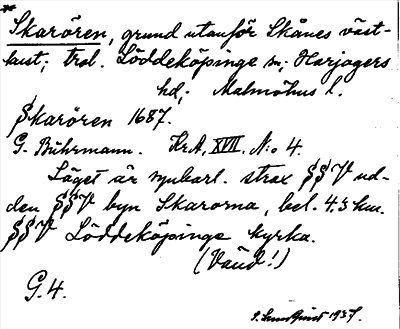 Skarören, grund utanför Skånes väst-
kust; trol. Löddeköpinge sn; Harjagers
hd; Malmöhus l.
Skarören 1687.
G. Buhrmann. Kr.A. XVII. N:o 4.
Läget är synbarl. strax §§V ud-
den §§V byn Skarorna, bel. 4.5 km.
§§V Löddeköpinge kyrka.
(Vänd!)
G.4.
1937.